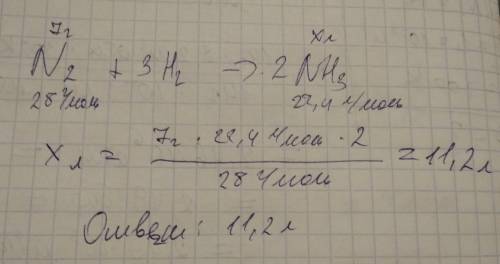 7г хл
N2 + 3H2 -> 2NH3
28 г/моль 22,4 г/моль
xл = 7г · 22,4 г/моль · 2 / 28 г/моль = 11,2л
Ответ: 11,2л